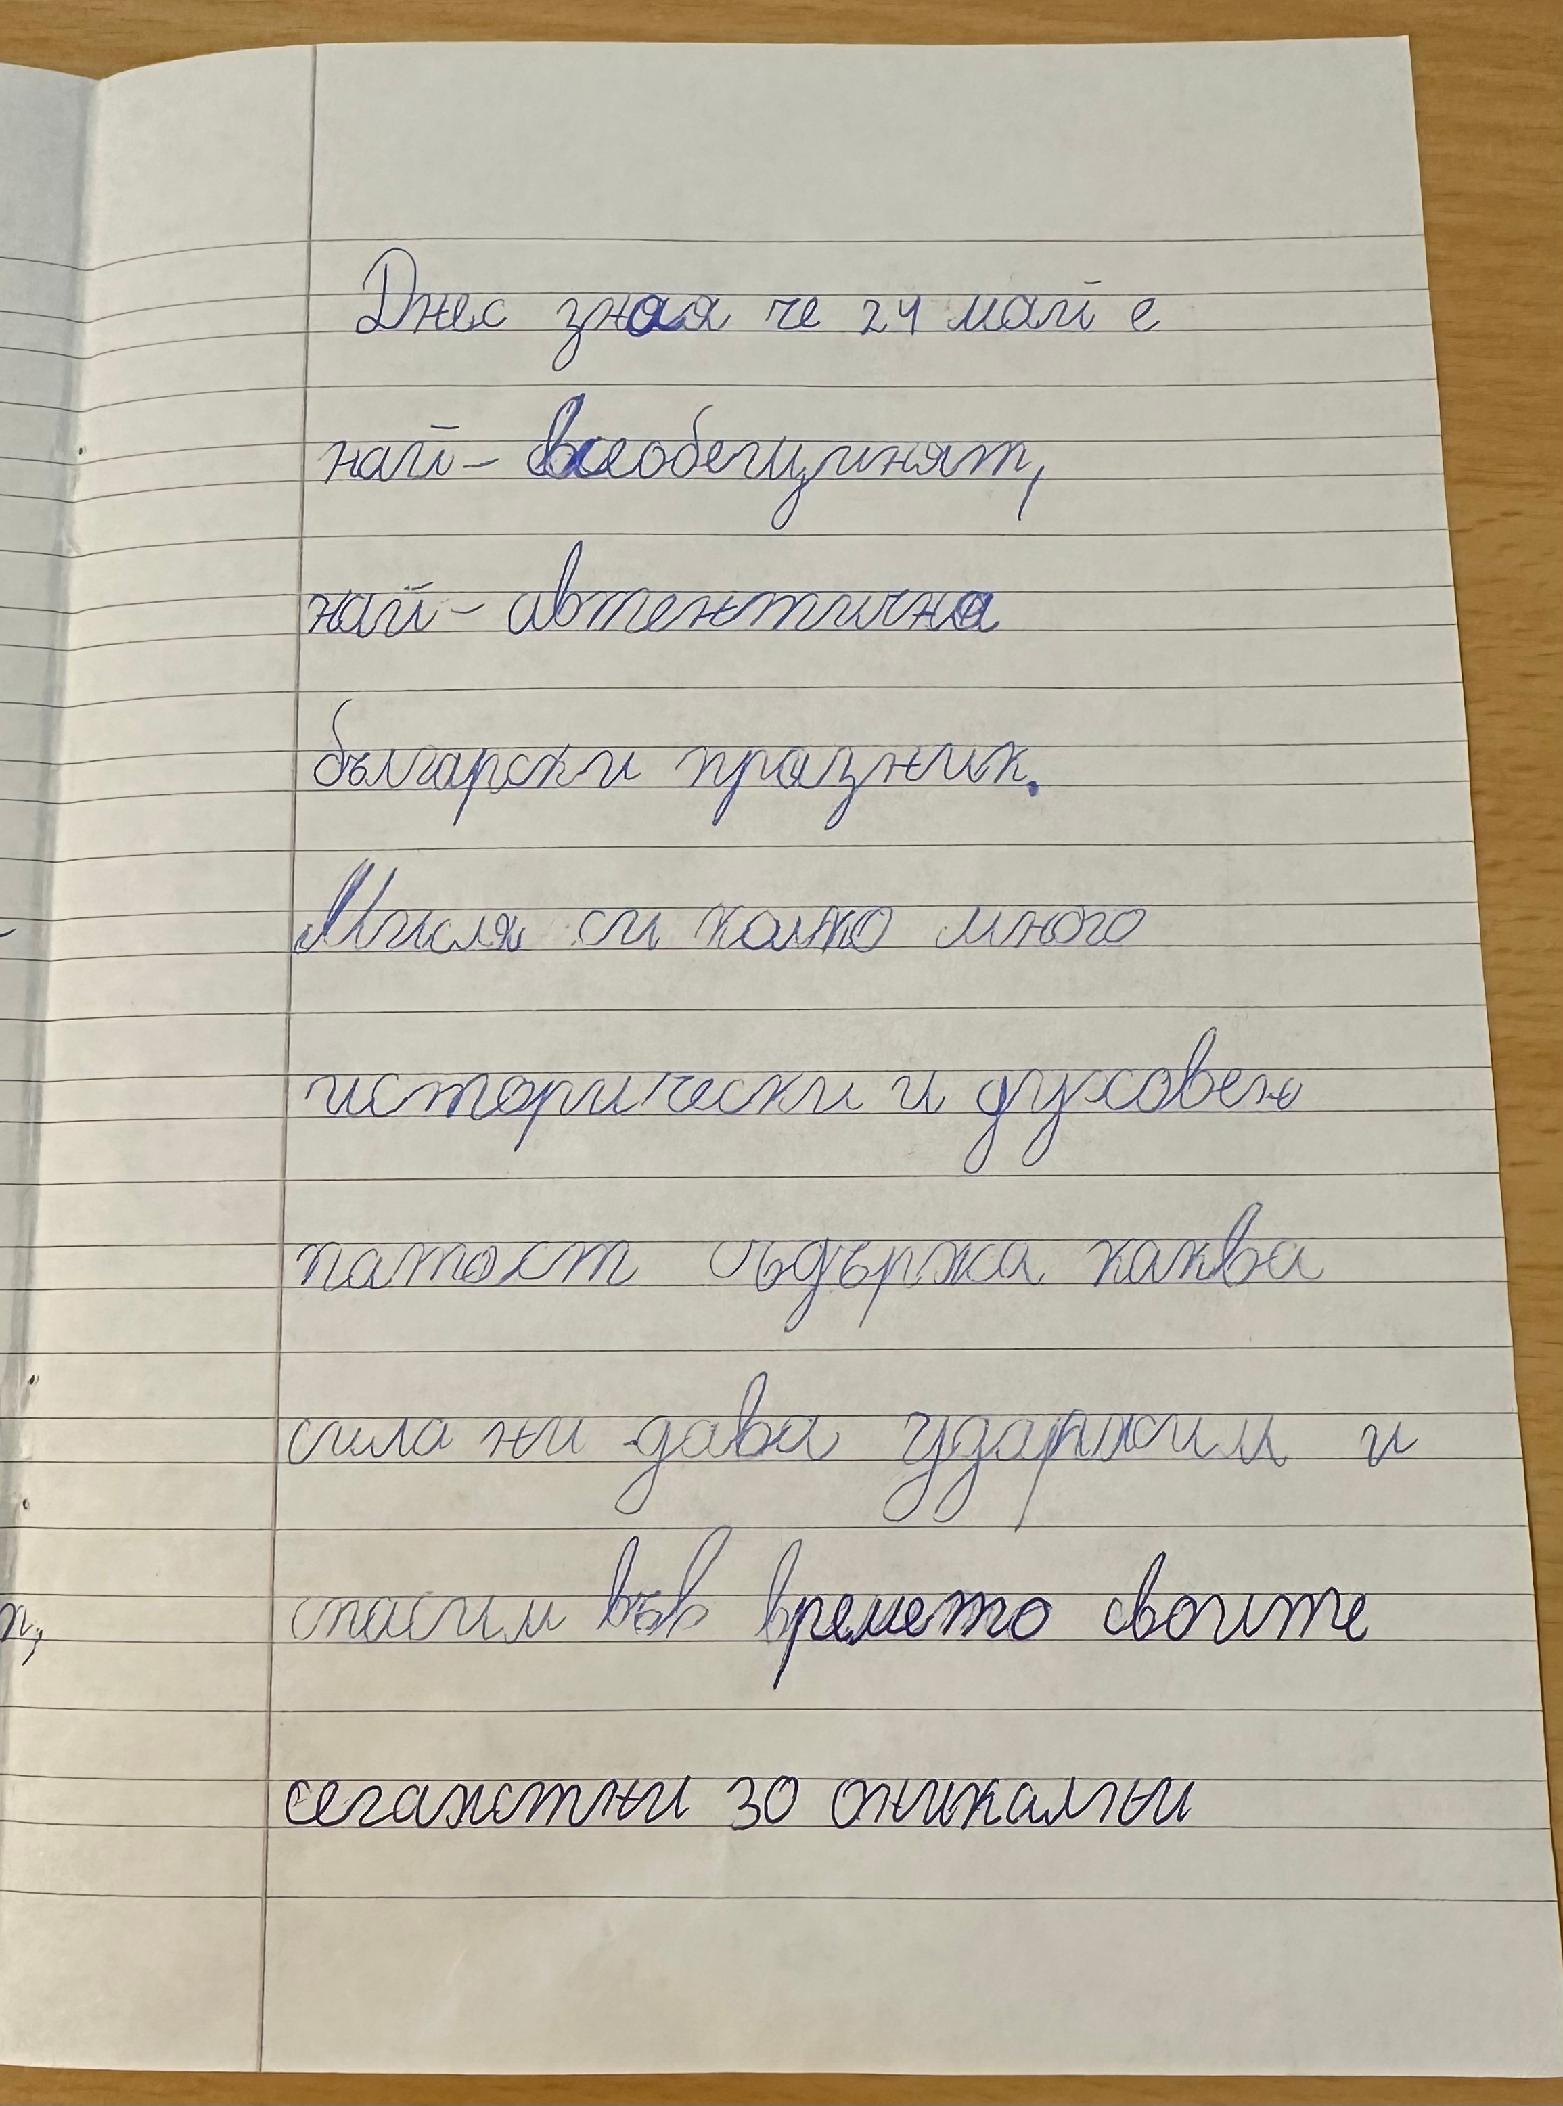 Днес зная че 24 май е
най- всеобещинят,
най- автентична
български празник.
Мисля си колко много
исторически и духовен
патост съдържа каква
сила ни дава ударжим и
спасим във времето своите
сегахстни 30 оникални